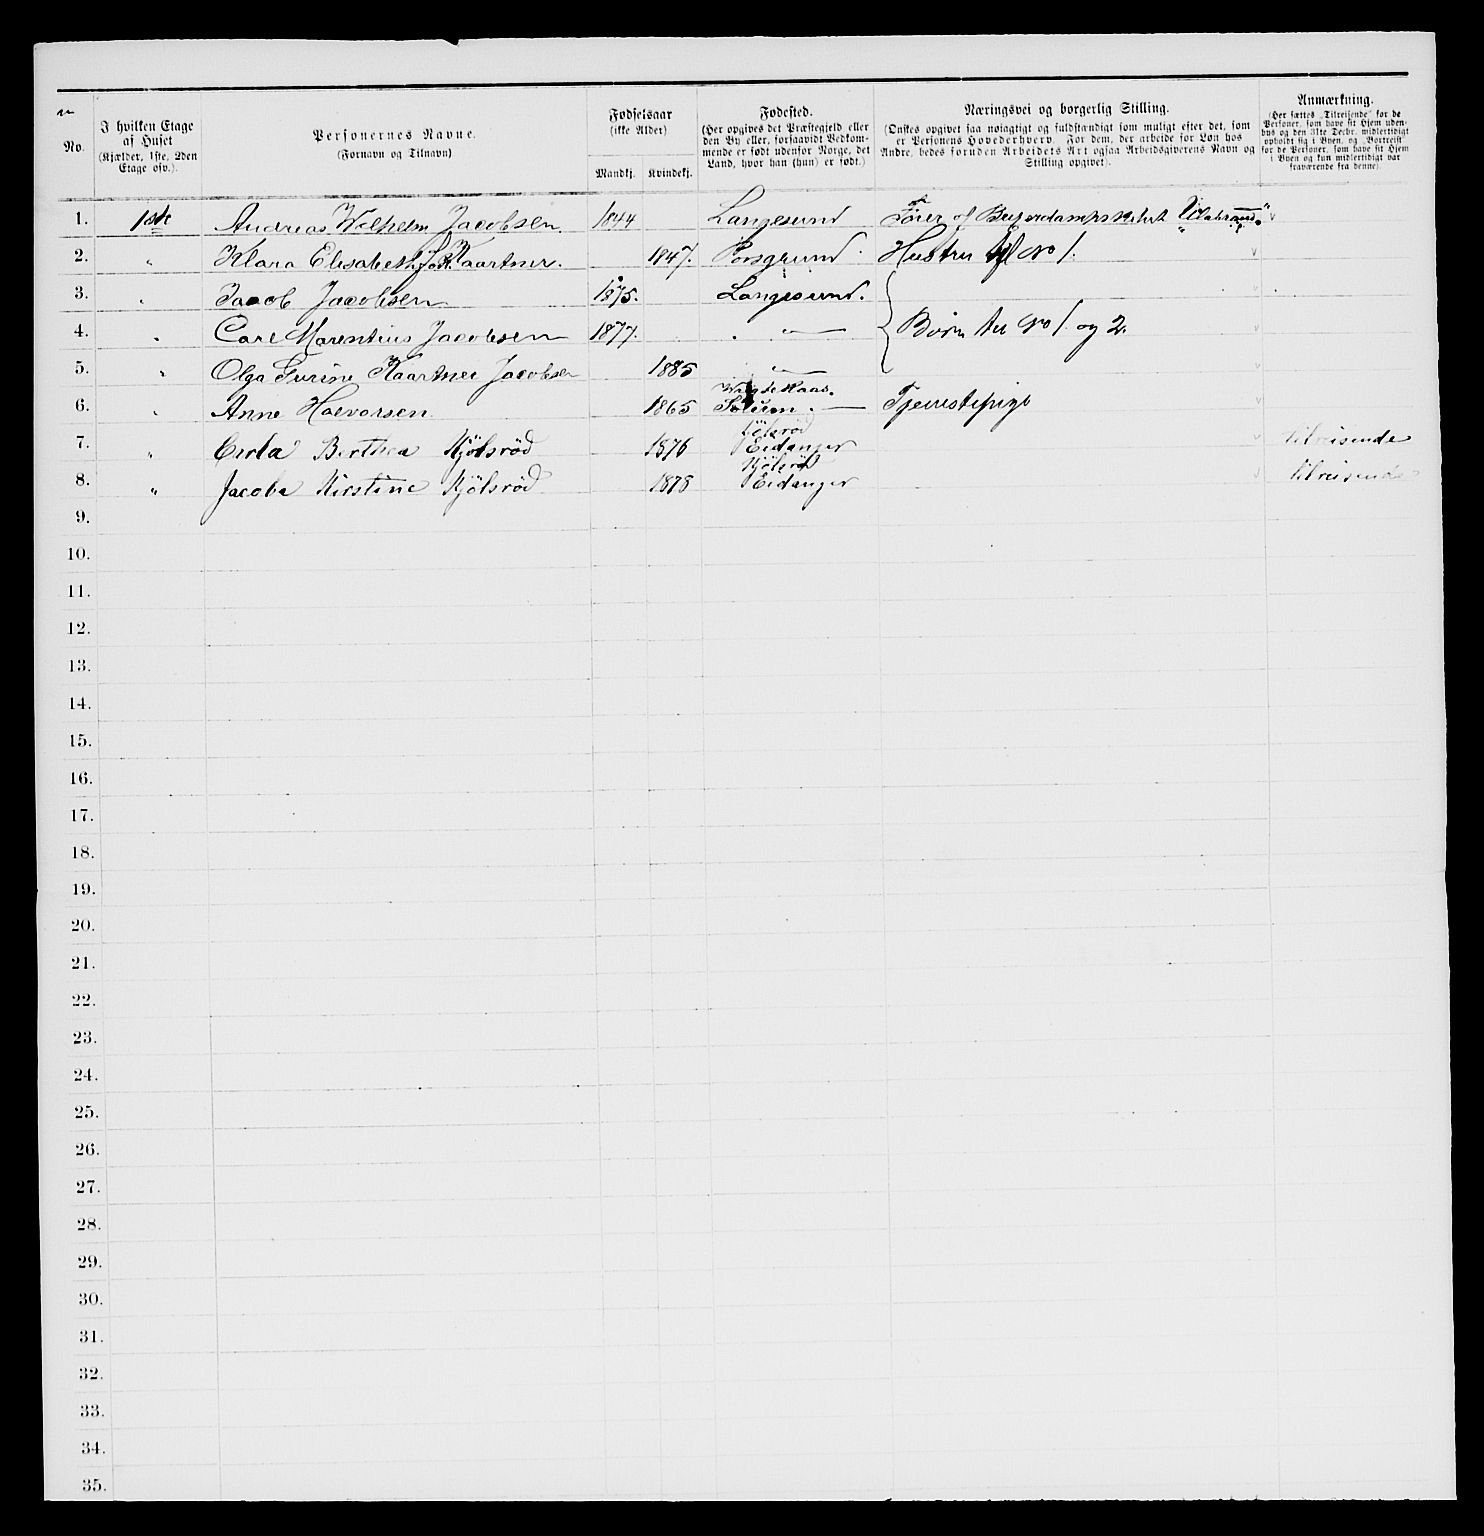 No.
I hvilken Etage
af Huset
(Kjælder, 1ste, 2den
Etage osv.).
Personernes Navne.
(Fornavn og Tilnavn)
Fødselsaar
(ikke Alder)
Mandkj. Kvindekj.
Fødested.
(Her opgives det Præstegjeld eller
den By eller, forsaavidt Vedkom-
mende er født udenfor Norge, det
Land, hvor han (hun) er født.)
Næringsvei og borgerlig Stilling.
(Ønskes opgivet saa nøiagtigt og fuldstændigt som muligt efter det, som
er Personens Hovederhverv. For dem, der arbeide for Løn hos
Andre, bedes foruden Arbeidets Art ogsaa Arbeidsgiverens Navn og
Stilling opgivet).
Anmærkning.
(Her sættes „Tilreisende" for de
Personer, som have sit Hjem uden-
bys og den 31te Decbr. midlertidigt
opholdt sig i Byen, og „Bortreist"
for de Personer, som have sit Hjem
i Byen og kun midlertidigt var
fraværende fra denne).
1. 1ste Andreas Wilhelm Jacobsen. 1844 Langesund Fører af
2. " Klara Elisabeth Kaartner. 1847. Porsgrund. Hustru til No 1.
3. " Jacob Jacobsen 1875. Langesund.
4. " Carl Marentius Jacobsen 1877. " Børn til No 1. og 2.
5. " Olga Turine Kaartner Jacobsen 1885 "
6. " Anne Halvorsen 1865 Solum. Tjenestepige
7. " Berthea Kjölsröd 1876 Kjölsröd Eidanger tilreisende
8. " Jacoba Kirstine Kjölsröd 1878 Kjölsröd Eidanger tilreisende
9.
10.
11.
12.
13.
14.
15.
16.
17.
18.
19.
20.
21.
22.
23.
24.
25.
26.
27.
28.
29.
30.
31.
32.
33.
34.
35.